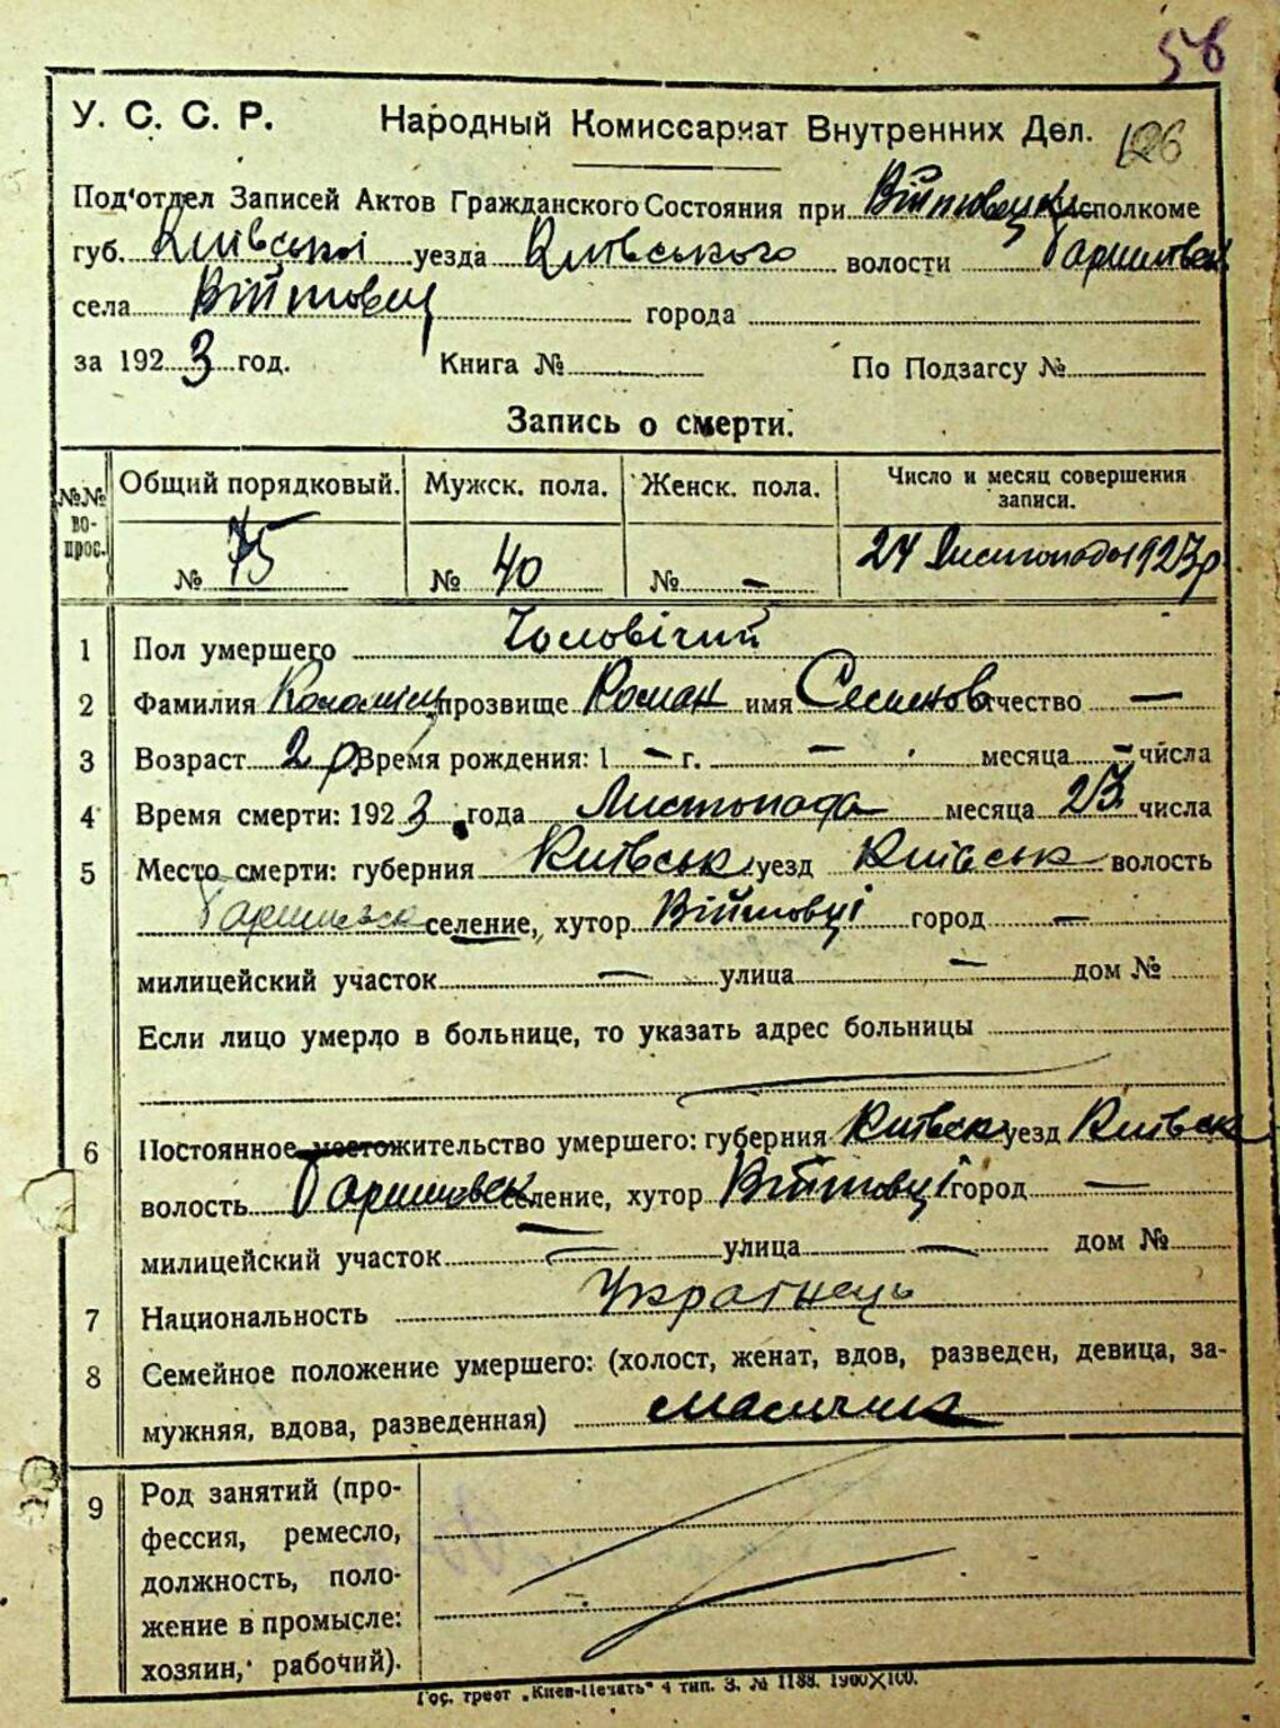 56
У. С. С. Р. Народный Комиссариат Внутренних Дел. 126
Под'отдел Записей Актов Гражданского Состояния при Війтовецк Исполкоме
губ. Київської уезда Київського волости
села Війтовец города
за 1923 год. Книга № По Подзагсу №
Запись о смерти.
№№ вопрос. Общий порядковый. Мужск. пола. Женск. пола. Число и месяц совершения записи.
№ 75 № 40 № — 24 Листопада 1923 р
1 Пол умершего Чоловічий
2 Фамилия прозвище Роман имя Семенов отчество —
3 Возраст 2 р Время рождения: 1 — г. — месяца — числа
4 Время смерти: 1923 года Листопада месяца 23 числа
5 Место смерти: губерния Київськ уезд Київськ волость
селение, хутор Війтовці город —
милицейский участок — улица — дом №
Если лицо умерло в больнице, то указать адрес больницы
6 Постоянное местожительство умершего: губерния Київськ уезд Київськ
волость селение, хутор Війтовці город —
милицейский участок — улица — дом №
7 Национальность Українець
8 Семейное положение умершего: (холост, женат, вдов, разведен, девица, за-
мужняя, вдова, разведенная)
9 Род занятий (про-
фессия, ремесло,
должность, поло-
жение в промысле:
хозяин, рабочий).
Гос. трест „Киев-Печать" 4 тип. З. № 1188. 1900X100.